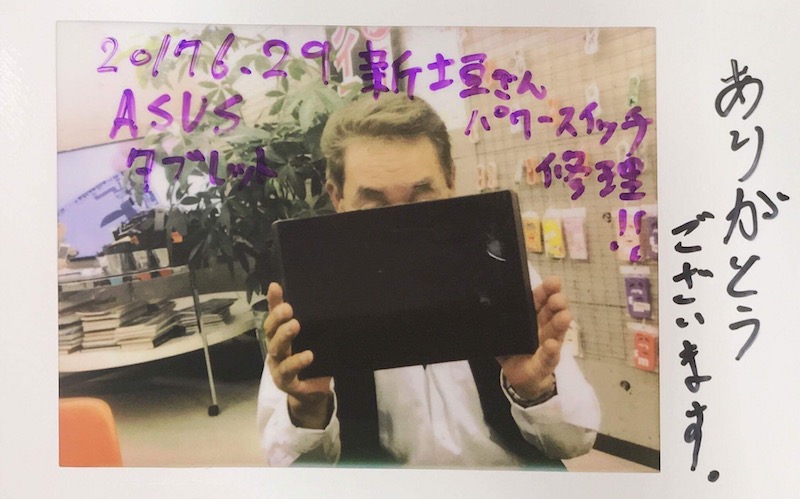 20176.29 新土豆さん
ASUS パワースイッチ
タブレット 修理!!
ありがとう
ございます。